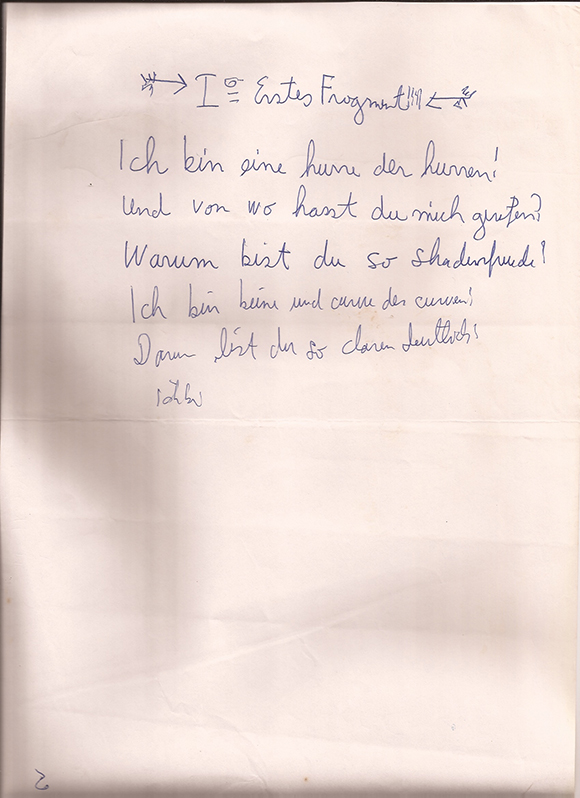 Iº Erstes Fragment!!!
Ich bin eine hurre der hurren!
Und von wo hasst du mich gerufen?
Warum bist du so shadenfreude!
Ich bin keine und curve der curven!
Darum bist du so claren deutlich!
2